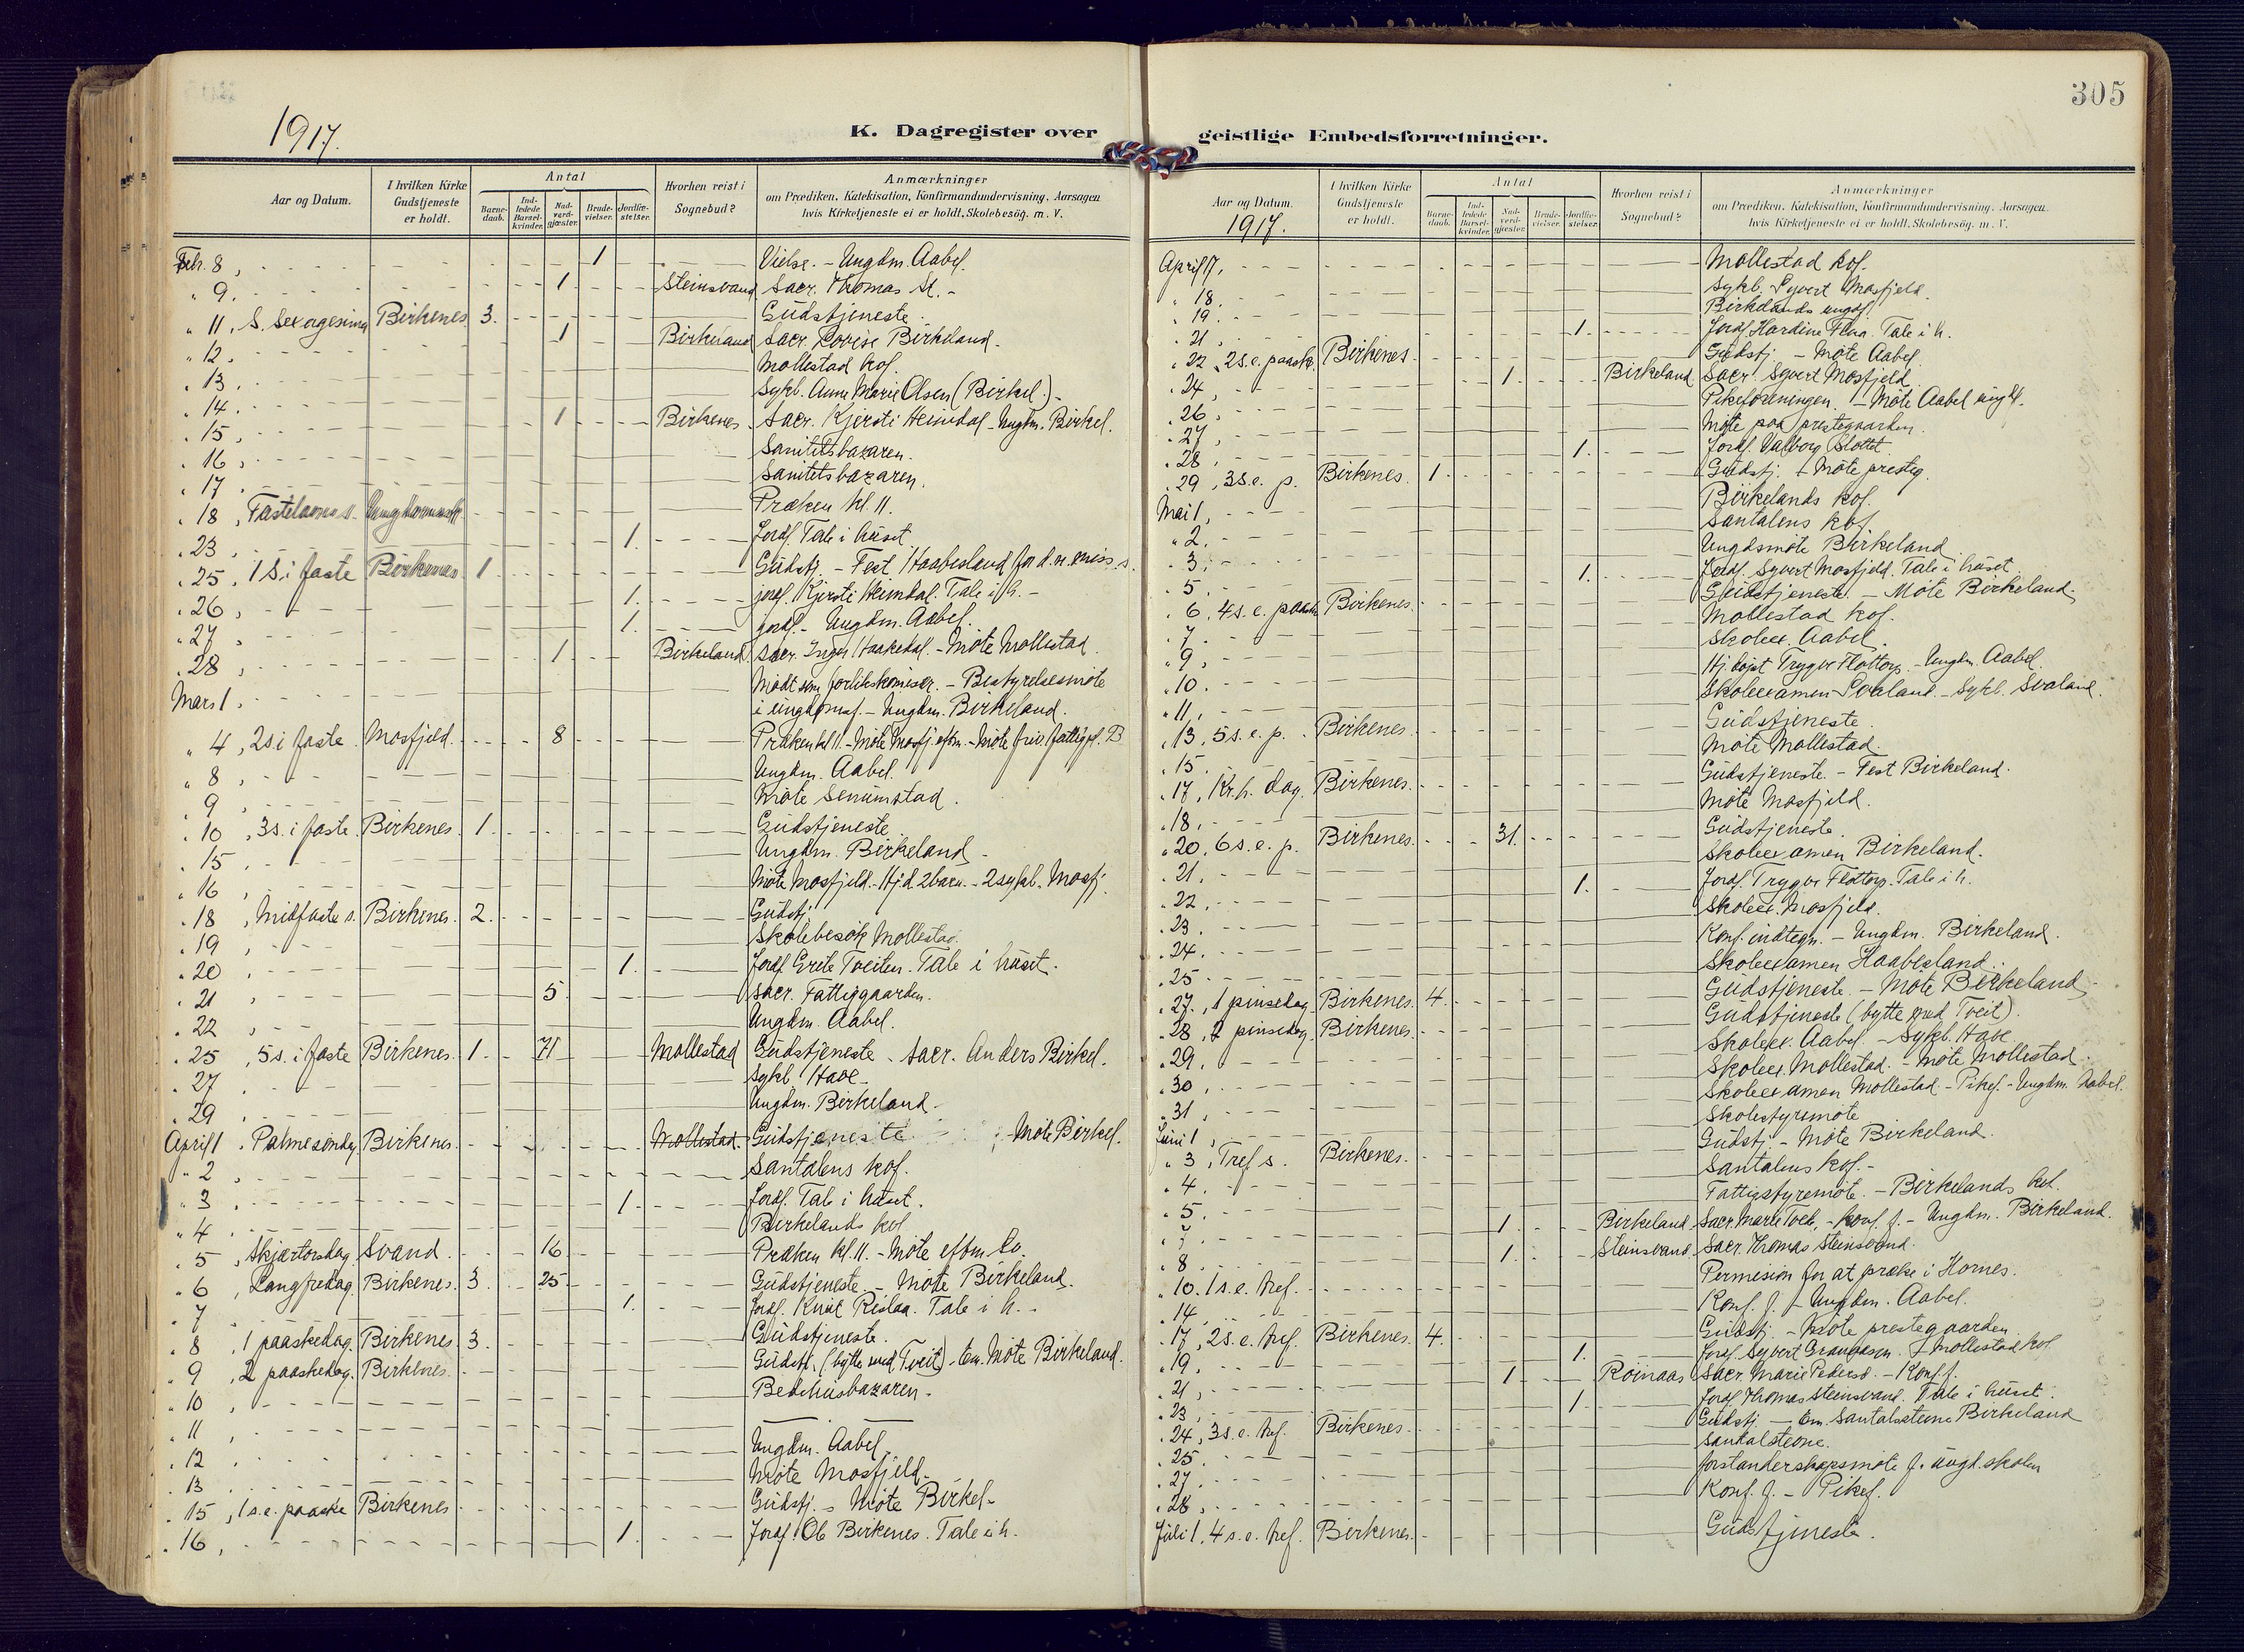 305
1917.
K. Dagregister over geistlige Embedsforretninger.
Aar og Datum. I hvilken Kirke Gudstjeneste er holdt. Antal Barnedaab. Indledede Barselkvinder. Nadverdgjæster. Brudevielser. Jordfæstelser. Hvorhen reist i Sognebud? Anmærkninger om Prædiken, Katekisation, Konfirmandundervisning, Aarsagen hvis Kirketjeneste ei er holdt, Skolebesøg. m. V.
Febr. 8, 1 Vielse. - Ungdm. Aabel.
" 9. 1 Steinsvand Sacr. Thomas St. -
" 11, S. Sexagesima Birkenes 3. Gudstjeneste.
" 12. 1 Birkeland Sacr. Lovise Birkeland.
" 13. Mollestad kof.
" 14. Sykb. Anne Marie Olsen (Birkel.) -
" 15, 1 Birkenes. Sacr. Kjersti Heimdal - Ungdm. Birkel.
" 16, Sanitetsbazaren.
" 17. Sanitetsbazaren.
" 18, Fastelavns s. Præken kl. 11.
" 23. 1. Jordf. Tale i huset
" 25, 1 S. i faste Birkenes 1 Gudstj. - Fest Haabesland for d. n. miss. s.
" 26, 1. jordf. Kjersti Heimdal. Tale i h. -
" 27, 1. jordf. - Ungdm. Aabel.
" 28, 1 Birkeland Sacr. Inger Haakedal. - Møte Mollestad.
Mars 1. Mødt som forlikskomisær. - Bestyrelsesmøte
i ungdomsf. - Ungdm. Birkeland.
" 4, 2 s i faste Mosfjeld. 8 Præken kl 11. - Møte Mosfj. eftm. - Møte friv. fattigpl. B
" 8, Ungdm. Aabel.
" 9 Møte Senumstad.
" 10, 3 s. i faste. Birkenes. 1. Gudstjeneste
" 15 Ungdm. Birkeland -
" 16 Møte Mosfjeld. - Hj.d. 2 barn. - 2 sykb. Mosfj.
" 18, Midfaste s. Birkenes. 2. Gudstj.
" 19 Skolebesøk Mollestad.
" 20 1. Jordf. Grete Tveiten. Tale i huset.
" 21 5 Sacr. Fattiggaarden.
" 22, Ungdm. Aabel.
" 25, 5 s. i faste Birkenes. 1. 71 Mollestad Gudstjeneste. Sacr. Anders Birkel.
" 27 Sykb. Have -
" 29 Ungdm. Birkeland -
April 1. Palmesøndag Birkenes. Mollestad Gudstjeneste - Møte Birkel.
" 2 Santalens kof.
" 3 1. Jordf. Tale i huset.
" 4 Birkelands kof.
" 5, Skjærtorsdag Svand. 16 Præken kl. 11. - Møte eftm Sv.
" 6, Langfredag Birkenes. 3. 25 Gudstjeneste. - Møte Birkeland.
" 7 1. Jordf. Knut Rislaa. Tale i h. -
" 8, 1 paaskedag. Birkenes 3. Gudstjeneste.
" 9, 2 paaskedag. Birkenes. Gudstj. (bytte med Tveit) - Em. Møte Birkeland.
" 10, Bedehusbazaren.
" 11,
" 12 Ungdm. Aabel
" 13 Møte Mosfjeld.
" 15, 1 s. e. paaske Birkenes Gudstj. - Møte Birkel -
" 16, 1 Jordf. Ole Birkenes. Tale i h.
Aar og Datum. 1917. I hvilken Kirke Gudstjeneste er holdt. Antal Barnedaab. Indledede Barselkvinder. Nadverdgjæster. Brudevielser. Jordfæstelser. Hvorhen reist i Sognebud? Anmærkninger om Prædiken, Katekisation, Konfirmandundervisning, Aarsagen hvis Kirketjeneste ei er holdt, Skolebesøg. m. V.
April 17, Mollestad kof.
" 18. Sykb. Syvert Mosfjeld.
" 19. Birkelands ungdf.
" 21. 1. Jordf. Hardine Flaa. Tale i h.
" 22, 2 s. e. paaske. Birkenes. Gudstj. - Møte Aabel
" 24, 1. Birkeland Sacr. Syvert Mosfjeld.
" 26, Pikeforeningen. - Møte Aabel ungdf.
" 27, Møte paa prestegaarden.
" 28, 1. Jordf. Valborg Slottet.
" 29, 3 s. e. p. Birkenes. 1. Gudstj. + Møte presteg.
Mai 1, Birkelands kof.
" 2. Santalens kof.
" 3. Ungdsmøte Birkeland
" 5. 1. Jordf. Syvert Mosfjeld. Tale i huset.
" 6, 4 s. e. paaske Birkenes. Gudstjeneste. - Møte Birkeland.
" 7. Mollestad kof.
" 9, Skoleex. Aabel.
" 10. Hj.døpt Trygve Flottorp. - Ungdm. Aabel.
" 11. Skoleexamen Svaland. - Sykb. Svaland.
" 13, 5 s. e. p. Birkenes. Gudstjeneste.
" 15. Møte Mollestad.
" 17, Kr. h. dag. Birkenes. Gudstjeneste. - Fest Birkeland.
" 18. Møte Mosfjeld.
" 20, 6 s. e. p. Birkenes. 31. Gudstjeneste.
" 21. Skoleexamen Birkeland.
" 22. 1. Jordf. Trygve Flottorp. Tale i h.
" 23. Skoleex. Mosfjeld.
" 24. Konf. indtegn. - Ungdm. Birkeland.
" 25 Skoleexamen Haabesland.
" 27, 1 pinsedag Birkenes. 4. Gudstjeneste. - Møte Birkeland
" 28, 2 pinsedag. Birkenes. Gudstjeneste (bytte med Tveit).
" 29. Skoleex. Aabel. - Sykb. Have
" 30. Skoleex. Mollestad. - Møte Mollestad.
" 31. Skoleexamen Mollestad. - Pikef. - Ungdm. Aabel.
Juni 1 Skolestyremøte
" 3, Tref s. Birkenes. Gudstj. - Møte Birkeland.
" 4. Santalens kof. -
" 5. Fattigstyremøte. - Birkelands kof.
" 7 1. Birkeland. Sacr. Marie Tveit. - Konf. f. - Ungdm. Birkeland.
" 8 1. Steinsvand. Sacr. Thomas Steinsvand.
" 10. 1 s. e. tref. Permision for at præke i Hornes.
" 14. Konf. f. - Ungdm. Aabel.
" 17, 2 s. e. tref. Birkenes. 4. Gudstj. - Møte prestegaarden.
" 19. 1. Jordf. Syvert + Mollestad kof.
" 21, 1. Røinaas Sacr. Marie Pedersd. - Konf. f.
" 23 1 Jordf. Thomas Steinsvand. Tale i huset.
" 24, 3 s. e. tref. Birkenes. Gudstj. - Em. Santalstevne Birkeland
" 25. Santalstevne.
" 27. forstanderskapsmøte f. ungd.skolen
" 28, Konf. f. - Pikef.
Juli 1. 4 s. e. tref. Birkenes. Gudstjeneste.